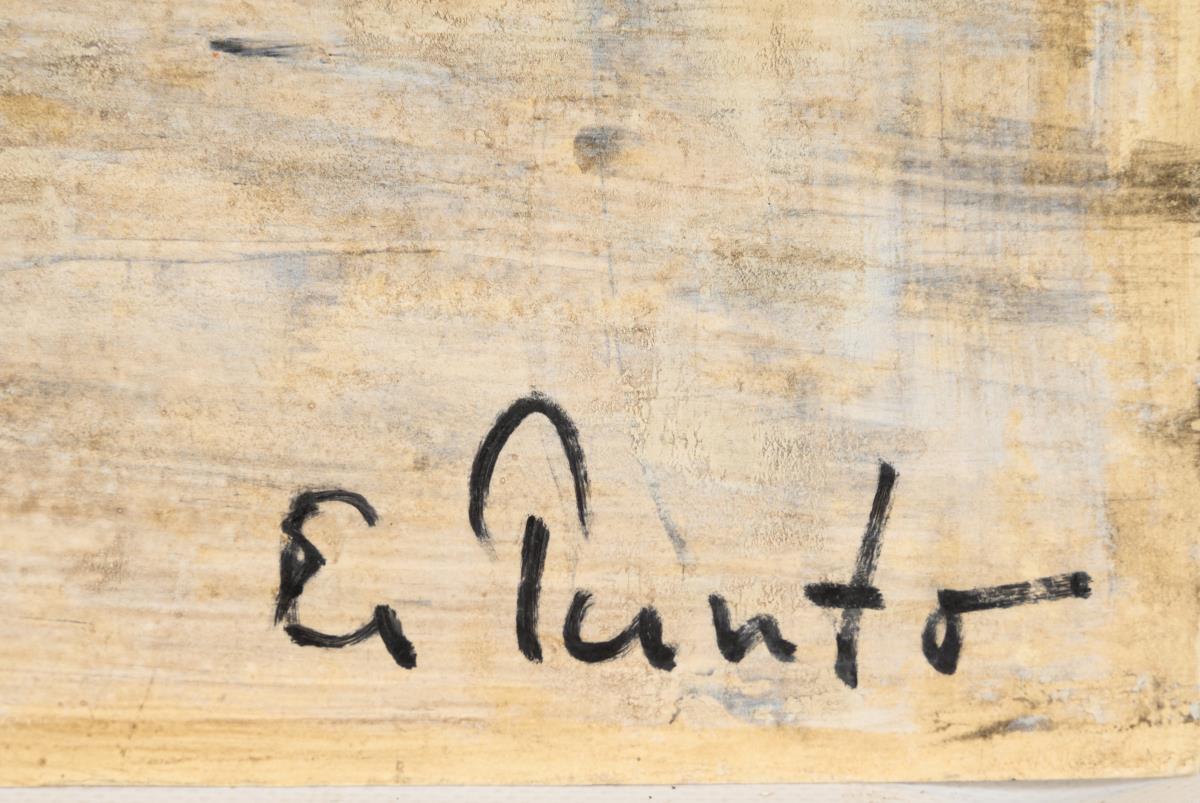 E Punto